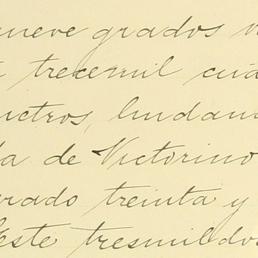 nueve grados v
trecemil cua
ctros, lindan
da de Victorino
grado treinta y
Oeste tresmildos